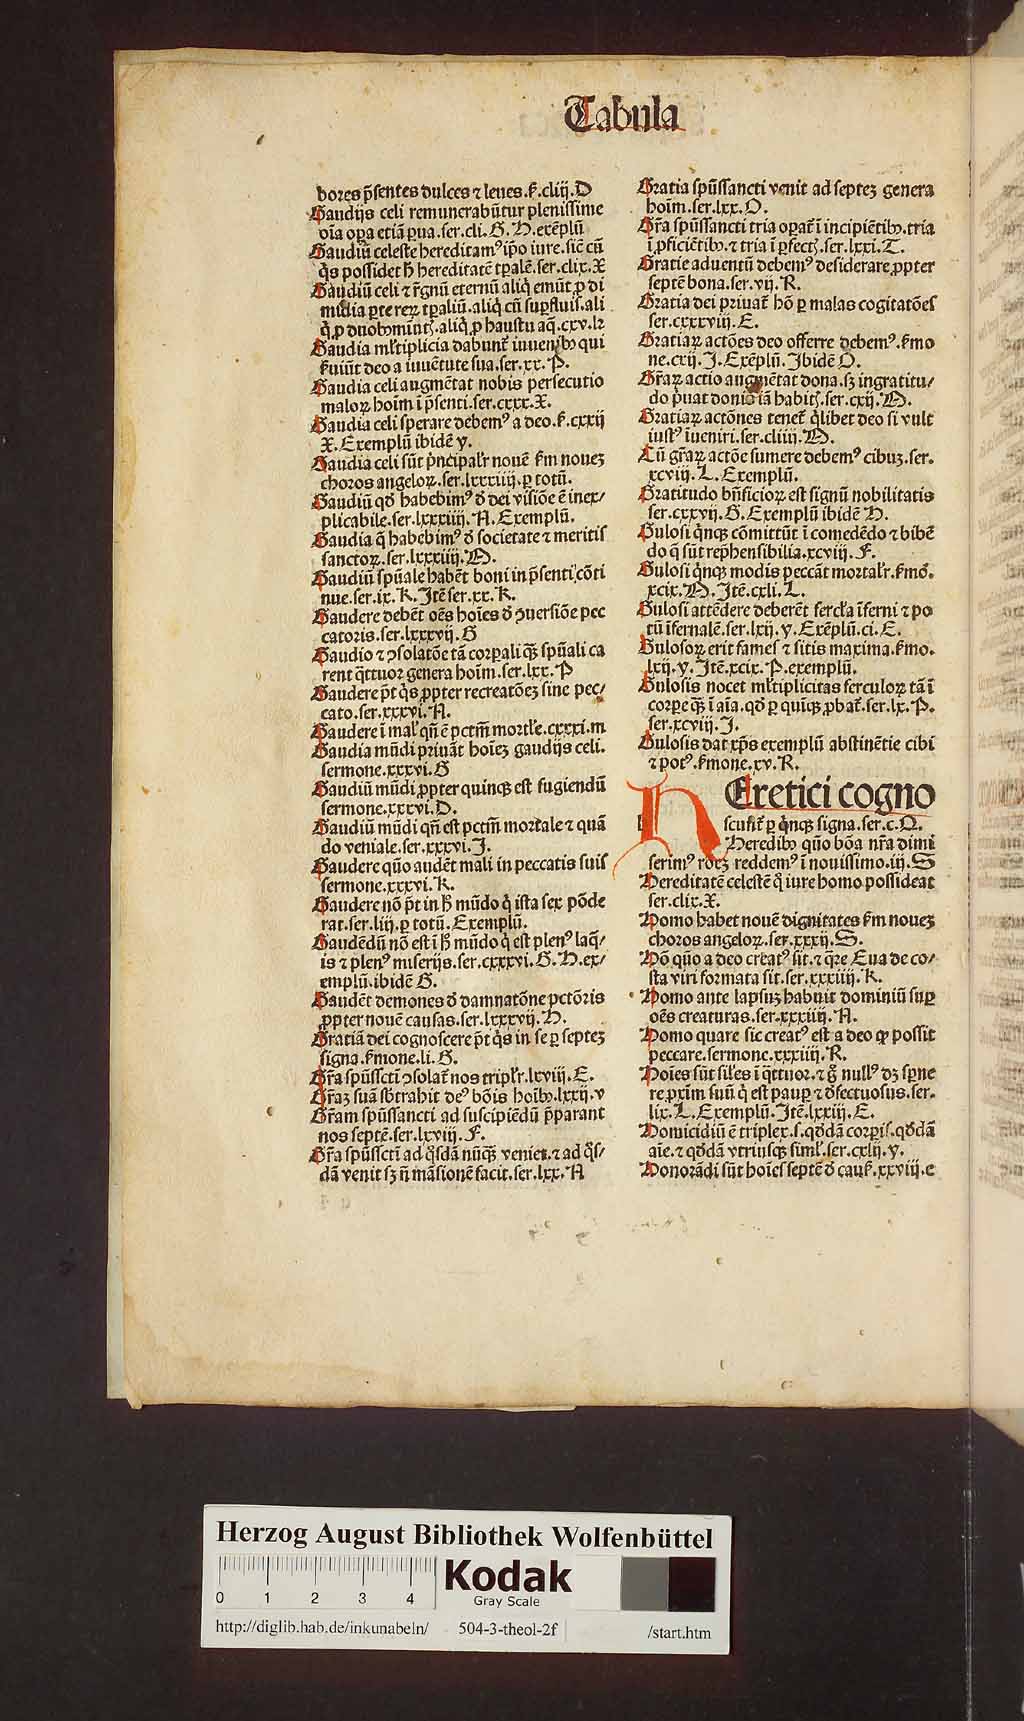 Tabula
bores p̄sentes dulces ⁊ leues.ẜ.cliij.D
Gaudijs celi remunerabūtur plenissime
oīa oꝑa etiā ꝑua.ser.cli.G.H.exēplū
Gaudiū celeste hereditamꝰ ip̄o iure.sic̄ cū
q̄s possidet h̄ hereditatē tꝑalē.ser.clix.X
Gaudiū celi ⁊ r̄gnū eternū aliq̇ emūt ꝓ di
midia ꝑte reꝝ tꝑaliū.aliq̇ cū suꝑfluis.ali
q̇ ꝓ duobꝰ mīutꝭ.aliq̇ ꝓ haustu aq̄.cxv.lꝛ
Gaudia ml̓tiplicia dabunt̄ iuuenibꝰ qui
ẜuiūt deo a iuuētute sua.ser.xx.P.
Gaudia celi augmētat nobis persecutio
maloꝝ hoīm ī p̄senti.ser.cxxx.X.
Gaudia celi sperare debemꝰ a deo.ẜ.cxxij
X.Exemplū ibidē y.
Gaudia celi sūt p̄ncipalr̄ nouē ẜm nouez
choros angeloꝝ.ser.lxxxiiij.ꝑ totū.
Gaudiū qd̄ habebimꝰ ď dei visiōe ē inex/
plicabile.ser.lxxxiiij.A.Exemplū.
Gaudia q̄ habebimꝰ ď societate ⁊ meritis
sanctoꝝ.ser.lxxxiiij.M.
Gaudiū spūale habēt boni in p̄senti cōti
nue.ser.ix.K.Itē ser.xx.K.
Gaudere debēt oēs hoīes ď ꝯuersiōe pec
catoris.ser.lxxxvij.G
Gaudio ⁊ ꝯsolatōe tā corꝑali qꝫ spūali ca
rent q̄ttuor genera hoīm.ser.lxx.P
Gaudere p̄t q̇s ꝓpter recreatōez sine pec/
cato.ser.xxxvi.A.
Gaudere ī mal̓ qn̄ ē pctm̄ mortl̓e.cxxxi.m
Gaudia mūdi priuāt hoīez gaudijs celi.
sermone.xxxvi.G
Gaudiū mūdi ꝓpter quinqꝫ est fugiendū
sermone.xxxvi.D.
Gaudiū mūdi qn̄ est pctm̄ mortale ⁊ quā
do veniale.ser.xxxvi.I.
Gaudere quō audēt mali in peccatis suis
sermone.xxxvi.K.
Gaudere nō p̄t in h̄ mūdo q̇ ista sex pōde
rat.ser.liij.ꝑ totū.Exemplū.
Gaudēdū nō est ī h̄ mūdo q̇ est plenꝰ laq̄/
is ⁊ plenꝰ miserijs.ser.cxxxvi.G.H.ex/
emplū.ibidē G.
Gaudēt demones ď damnatōne pctōris
ꝓpter nouē causas.ser.lxxxvij.H.
Gratiā dei cognoscere p̄t q̇s in se ꝑ septez
signa.ẜmone.li.G.
Gr̄a spūssctī ꝯsolat̄ nos triplr̄.lxviij.E.
Gr̄az suā sb̄trahit deꝰ bōis hoībꝰ.lxxij.v
Gr̄am spūssancti ad suscipiēdū p̄parant
nos septē.ser.lxviij.F.
Gr̄a spūssctī ad q̇sdā nūqꝫ veniet.⁊ ad q̇s/
dā venit sꝫ n̄ māsionē facit.ser.lxx.A
Gratia spūssancti venit ad septez genera
hoīm.ser.lxx.O.
Gr̄a spūssancti tria oꝑat̄ ī incipiētibꝰ.tria
ī ꝓficiētibꝰ.⁊ tria ī ꝑfectꝭ.ser.lxxi.T.
Gratie aduentū debemꝰ desiderare ꝓpter
septē bona.ser.vij.R.
Gratia dei priuat̄ hō ꝑ malas cogitatōes
ser.cxxxviij.E.
Gratiaꝝ actōes deo offerre debemꝰ.ẜmo
ne.cxij.I.Exēplū.Ibidē O.
Gr̄aꝝ actio augmētat dona.sꝫ ingratitu/
do p̄uat donis iā habitꝭ.ser.cxij.M.
Gratiaꝝ actōnes tenet̄ q̄libet deo si vult
iustꝰ īueniri.ser.cliiij.M.
Cū gr̄aꝝ actōe sumere debemꝰ cibuz.ser.
xcviij.L.Exemplū.
Gratitudo bn̄ficioꝝ est signū nobilitatis
ser.cxxvij.G.Exemplū ibidē H.
Gulosi q̇nqꝫ cōmittūt ī comedēdo ⁊ bibē
do q̄ sūt rep̄hensibilia.xcviij.F.
Gulosi q̇nqꝫ modis peccāt mortalr̄.ẜmō.
xcix.M.Itē.cxli.L.
Gulosi attēdere deberēt fercl̓a īferni ⁊ po
tū īfernalē.ser.lxij.y.Exēplū.ci.E.
Gulosoꝝ erit fames ⁊ sitis maxima.ẜmo.
lxij.y.Itē.xcix.P.exemplū.
Gulosis nocet ml̓tiplicitas ferculoꝝ tā ī
corꝑe qꝫ ī aīa.qd̄ ꝑ quīqꝫ ꝓbat̄.ser.lx.P.
ser.xcviij.I.
Gulosis dat xp̄s exemplū abstinētie cibi
⁊ potꝰ.ẜmone.xv.R.
HEretici cogno
scūnt̄ ꝑ q̇nqꝫ signa.ser.c.Q.
Heredibꝰ quō bōa nr̄a dimi
serimꝰ rōez reddemꝰ ī nouissimo.iij.S
Hereditatē celestē q̇ iure homo possideat
ser.clix.X.
Homo habet nouē dignitates ẜm nouez
choros angeloꝝ.ser.xxxij.S.
Hō quō a deo creatꝰ sit.⁊ q̄re Eua de co/
sta viri formata sit.ser.xxxiiij.K.
Homo ante lapsuz habuit dominiū suꝑ
oēs creaturas.ser.xxxiiij.A.
Homo quare sic creatꝰ est a deo ꝙ possit
peccare.sermone.xxxiiij.R.
Hoīes sūt siles ī q̄ttuor.⁊ gͦ nullꝰ dꝫ sꝑne
re ꝓxim̄ suū q̇ est paup̄ ⁊ ď̄fectuosus.ser.
lix.L.Exemplū.Itē.lxxiij.E.
Homicidiū ē triplex.s.qd̄dā corꝑis.qd̄dā
aīe.⁊ qd̄dā vtriusqꝫ siml̓.ser.cxlij.y.
Honorādi sūt hoīes septē ď cauẜ.xxviij.e
Herzog August Bibliothek Wolfenbüttel
0 1 2 3 4
Kodak
Gray Scale
http://diglib.hab.de/inkunabeln/ 504-3-theol-2f /start.htm